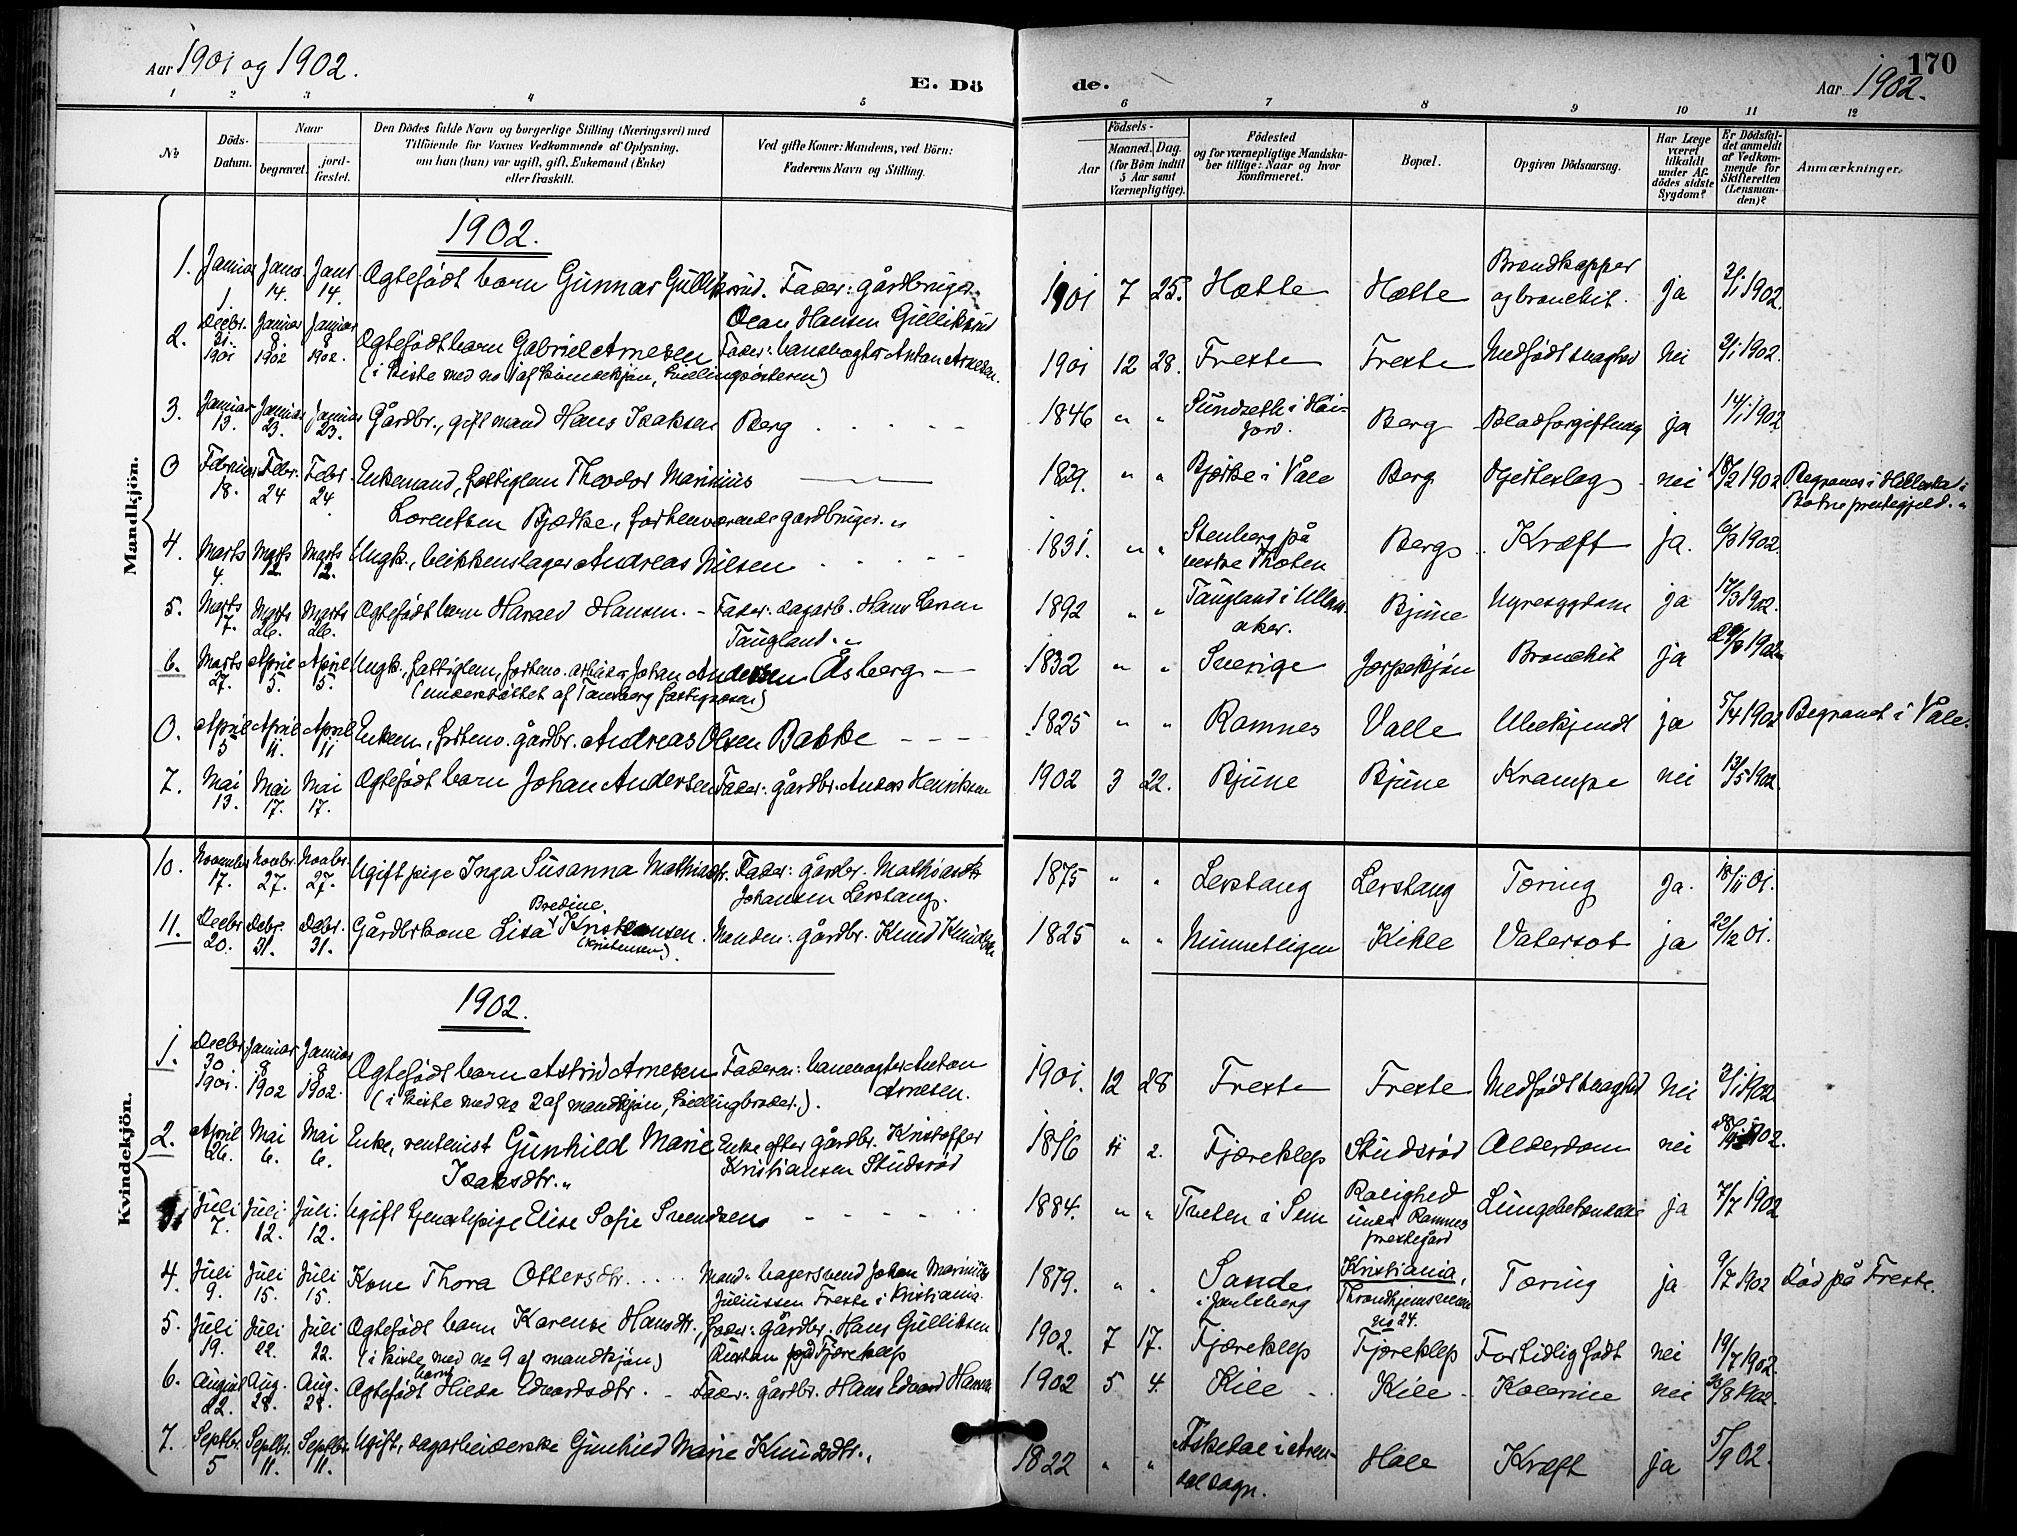 Aar 1901 og 1902.
E. Dö
de.
Aar 1902.
170
1 2 3 4 5 6 7 8 9 10 11 12
№
Döds-
Datum.
Naar
begravet.
jord-
fæstet.
Den Dödes fulde Navn og borgerlige Stilling (Næringsvei) med
Tilföiende for Voxnes Vedkommende af Oplysning,
om han (hun) var ugift, gift, Enkemand (Enke)
eller fraskilt.
Ved gifte Koner: Mandens, ved Börn:
Faderens Navn og Stilling.
Födsels-
Aar
Maaned. Dag.
(for Börn indtil
5 Aar samt
Værnepligtige).
Födested
og for værnepligtige Mandska-
ber tillige: Naar og hvor
konfirmeret.
Bopæl.
Opgiven Dödsaarsag.
Har Læge
været
tilkaldt
under Af-
dödes sidste
Sygdom?
Er Dödsfal-
det anmeldt
af Vedkom-
mende for
Skifteretten
(Lensman-
den)?
Anmærkninger.
Mandkjön.
1902.
1. Januar 1. Janr 14. Janr 14. Ægtefödt barn Gunnar Gulliksrud. Fader: gårdbruger Olaus Hansen Gulliksrud 1901 7 25. Hætte Hætte Brandkopper og bronchit. ja 2/1 1902.
2. Decbr. 31. 1901 Januar 8 1902 Januar 8 1902. Ægtefödt barn Gabriel Arnesen Fader: banevogter Anton Arnesen.
(i kiste med no 1 af kvindekjön, tvillingsösteren)
1901 12 28. Freste Freste Medfödt svaghed Nei 2/1 1902.
3. Januar 13. Januar 23. Januar 23. Gårdbr., gift mand Hans Isaksen Berg 1846 " " Sundseth i Höi-
jord. Berg Blodforgiftning ja 14/1 1902
0 Februar 18. Febr. 24 Febr. 24. Enkemand, fattiglem Theodor Marinius
Lorentsen Bjerke, forhenværende gårdbruger. 1829. " " Bjerke i Våle Berg Hjerteslag nei 18/2 1902 Begraves i Hillestad i
Botne prestegjeld.
4. Marts 4. Marts 12. Marts 12. Ungk., blikkenslager Andreas Nilsen 1831. " " Stenberg på
vestre Thoten Berg Kræft ja. 6/3 1902.
5. Marts 7. Marts 26. Marts 26. Ægtefödt barn Harald Hansen. - Fader: dagarb. Hans Larsen
Taugland. 1892 " " Taugland i Ullens-
aker. Bjune Nyresygdom ja 17/3 1902.
6. Marts 27. April 5. April 5. Ungk., fattiglem, forhenv. arbeider Johan Andersen Åsberg
(understöttet af Tønsberg fattigvæsen) 1832 " " Sverige Jarpekjøn Bronchit ja 1902.
0. April 5 April 11. April 11 Enkem., forhenv. gårdbr. Andreas Olsen Bakke 1825 " " Ramnes Valle Ubekjendt ja 5/4 1902 Begravet i Våle.
7. Mai 13. Mai 17. Mai 17. Ægtefödt barn Johan Andersen Fader: gårdbr. Anders Henriksen 1902 3 22. Bjune Bjune Krampe nei 13/5 1902.
Kvindekjön.
10. Novembr 17. Novbr. 27. Novbr. 27. Ugift pige Inga Susanna Mathiasdtr. Fader: gårdbr. Mathias
Johansen Lerstang. 1875 " " Lerstang Lerstang Tæring ja. 18/11 01.
11. Decbr 20. Debr. 31. Debr. 31. Gårdbrkone Lisa Bredine Kristensen. (Kristensen). Manden: gårdbr. Knud Knudsen 1825 " " Kihle Vatersot ja 22/12 01.
1902.
1. Decbr 30 1901. Januar 8 1902 Januar 8 1902. Ægtefödt barn Astrid Arnesen Faderen: banevogter Anton
Arnesen.
(i kiste med no 2 af mandkjön, tvillingbroder.).
1901. 12 28 Freste Freste Medfödt svaghed Nei 2/1 1902
2. April 26. Mai 6. Mai 6. Enke, rentenist Gunhild Marie
Isaksdtr. Enke efter gårdbr. Kristoffer
Kristiansen Studsröd 1816 11 2. Fjæreklep Studsröd Alderdom nei 1902.
3. Juli 7. Juli 12. Juli 12. Ugift tjenestepige Elise Sofie Svendsen 1884. " " Tveten i Sem Rolighed
under Ramnes
prestegård Lungebetændelse ja 7/7 1902
4. Juli 9. Juli 15. Juli 15. Kone Thora Ottersdtr. Mand: bagersvend Johan Marinius
Juliussen Freste i Kristiania. 1879. " " Sande
i Jarlsberg Kristiania,
Throndhjemsveien
no 24. Tæring ja 9/7 1902 Död på Freste.
5. Juli 19. Juli 22. Juli 22. Ægtefödt barn Karense Hansdtr. Fader: gårdbr. Hans Gulliksen
Rustan på Fjæreklep
(i kiste med no 9 af mandkjön)
1902. 7 17. Fjæreklep Fjæreklep For tidlig födt nei 19/7 1902.
6. August 22. Aug. 28. Aug. 28. Ægtefödt barn Hilda Edvardsdtr. - Fader: gårdbr. Hans Edvard Hansen 1902 5 4. Kile Kile Kolerine nei 1902.
7. Septbr. 5 Septbr. 11. Septbr. 11. Ugift, dagarbeiderske Gunhild Marie Knudsdtr. 1822 " " Askedal i Aren-
dal sogn. Hole Kræft ja 5/9 02.